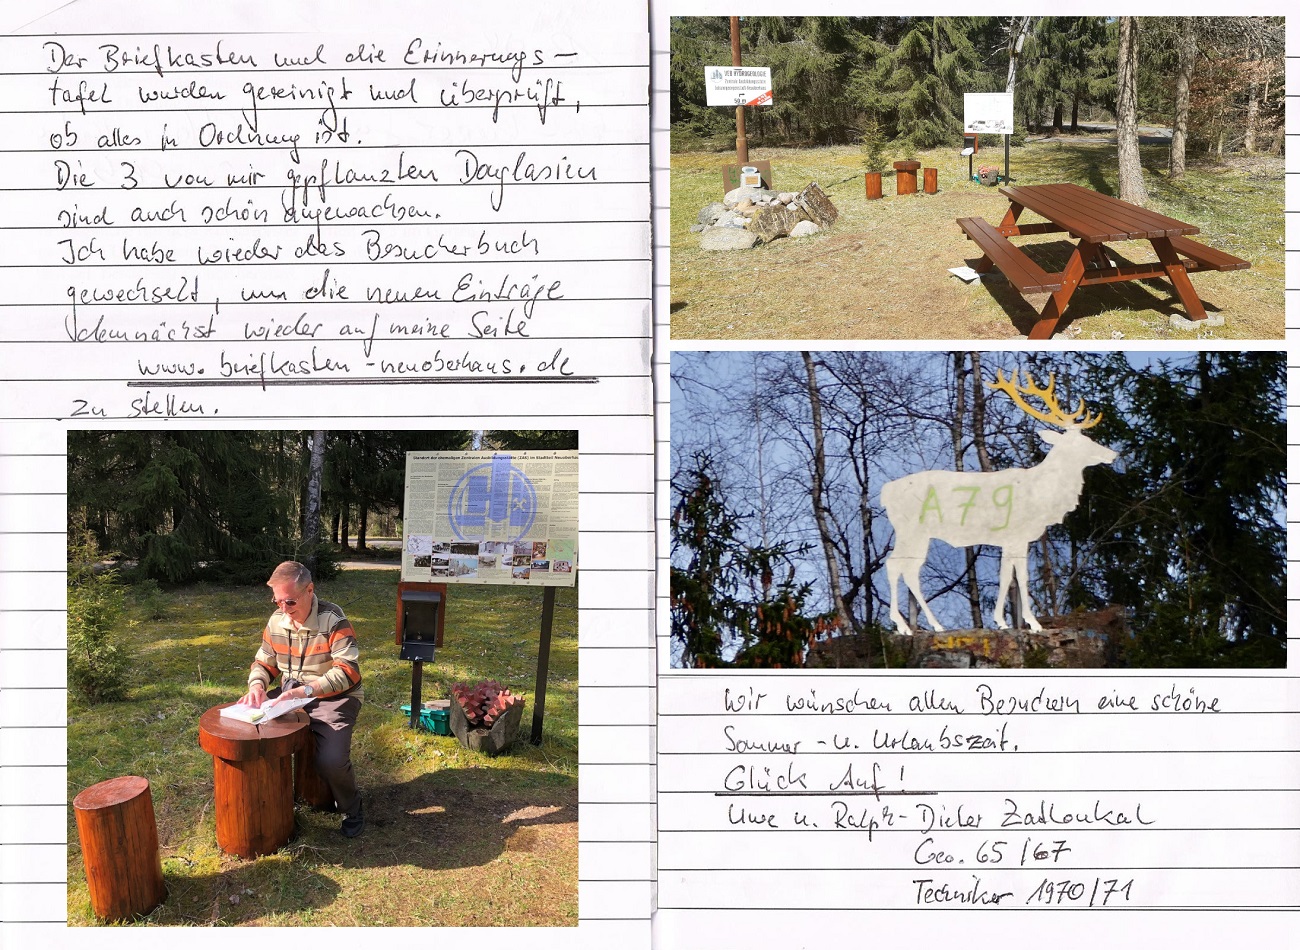 Der Briefkasten und die Erinnerungs-
tafel wurden gereinigt und überprüft,
ob alles in Ordnung ist.
Die 3 von mir gepflanzten Douglasien
sind auch schön angewachsen.
Ich habe wieder das Besucherbuch
gewechselt, um die neuen Einträge
demnächst wieder auf meine Seite
www.briefkasten-neuoberhaus.de
zu stellen.
Standort der ehemaligen Zentralen Ausbildungsstätte (ZAS) im Stadtteil Neuoberhaus
VEB HYDROGEOLOGIE
Zentrale Ausbildungsstätte
50 m
A79
Wir wünschen allen Besuchern eine schöne
Sommer- u. Urlaubszeit.
Glück Auf!
Uwe u. Ralph-Dieter Zadloukal
Geo. 65/67
Techniker 1970/71